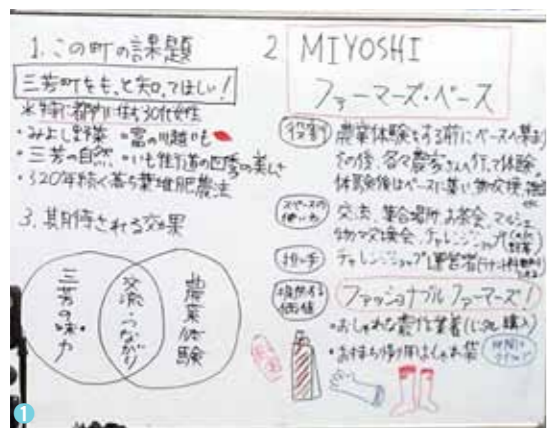 1. この町の課題
三芳町をもっと知ってほしい!
※特に都内に住む30代女性
・みよし野菜 ・富の川越いも
・三芳の自然 ・いも街道の四季の美しさ
・320年続く落ち葉堆肥農法
3. 期待される効果
三芳の魅力
交流・つながり
農業体験
2 MIYOSHI
ファーマーズ・ベース
役割 農業体験をする前にベースへ集まり
その後、各々農家さんへ行って体験。
体験後はベースに集い物々交換、
スペースの使い方 交流、集合場所、お茶会、マルシェ
物々交換会、チャレンジショップ
担い手 チャレンジショップ運営者
提供する価値 ファッショナブルファーマーズ!
・おしゃれな農作業着(に 購入)
・お持ち帰り用おしゃれ袋
1